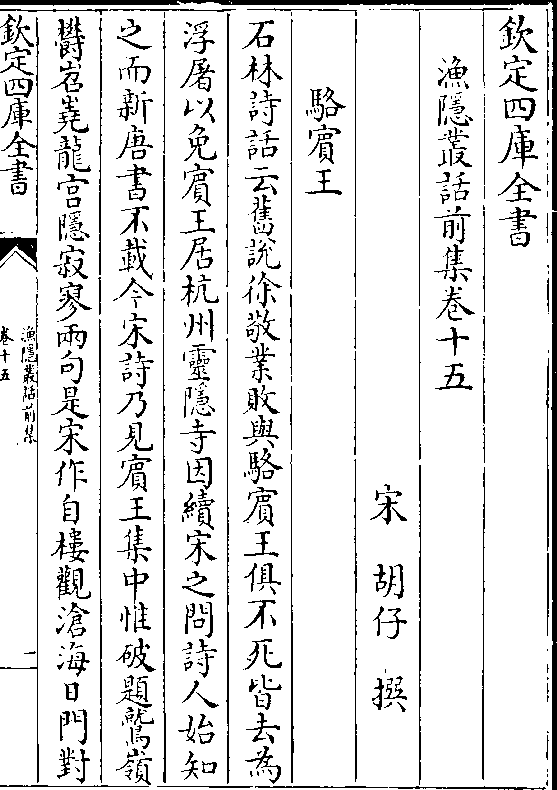 欽定四庫全書
漁隱叢話前集卷十五
宋 胡仔 撰
駱賓王
石林詩話云舊說徐敬業敗與駱賓王俱不死皆去為
浮屠以免賓王居杭州靈隱寺因續宋之問詩人始知
之而新唐書不載今宋詩乃見賓王集中惟破題鷲嶺
鬱岧嶤龍宮隱寂寥兩句是宋作自樓觀滄海日門對
欽定四庫全書
漁隱叢話前集
卷十五
一